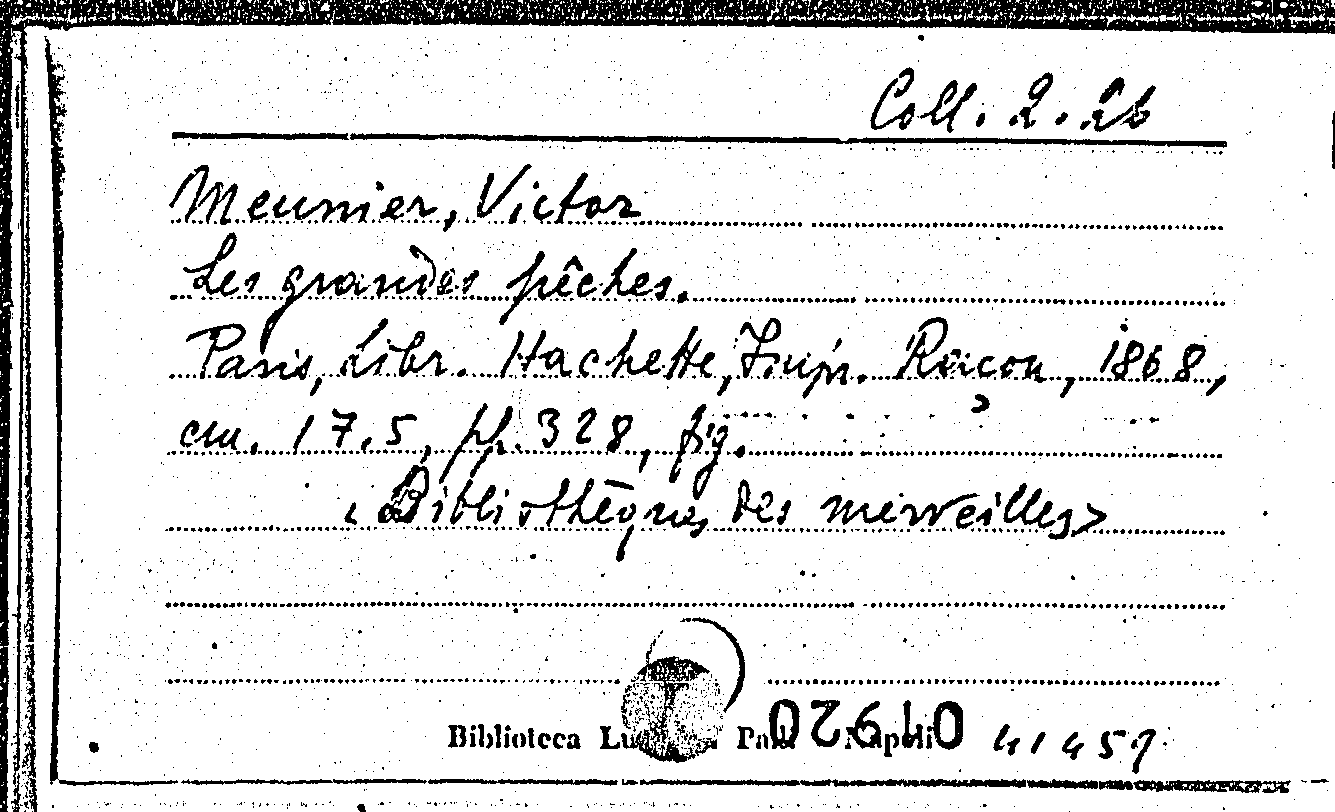 Coll. 2. 26
Meunier, Victor
Les grandes pêches.
Paris, Libr. Hachette, Impr. Raçon, 1868,
cm. 17.5, pp. 328, fig.
<Bibliothèque des merveilles>
Biblioteca Napoli 41457